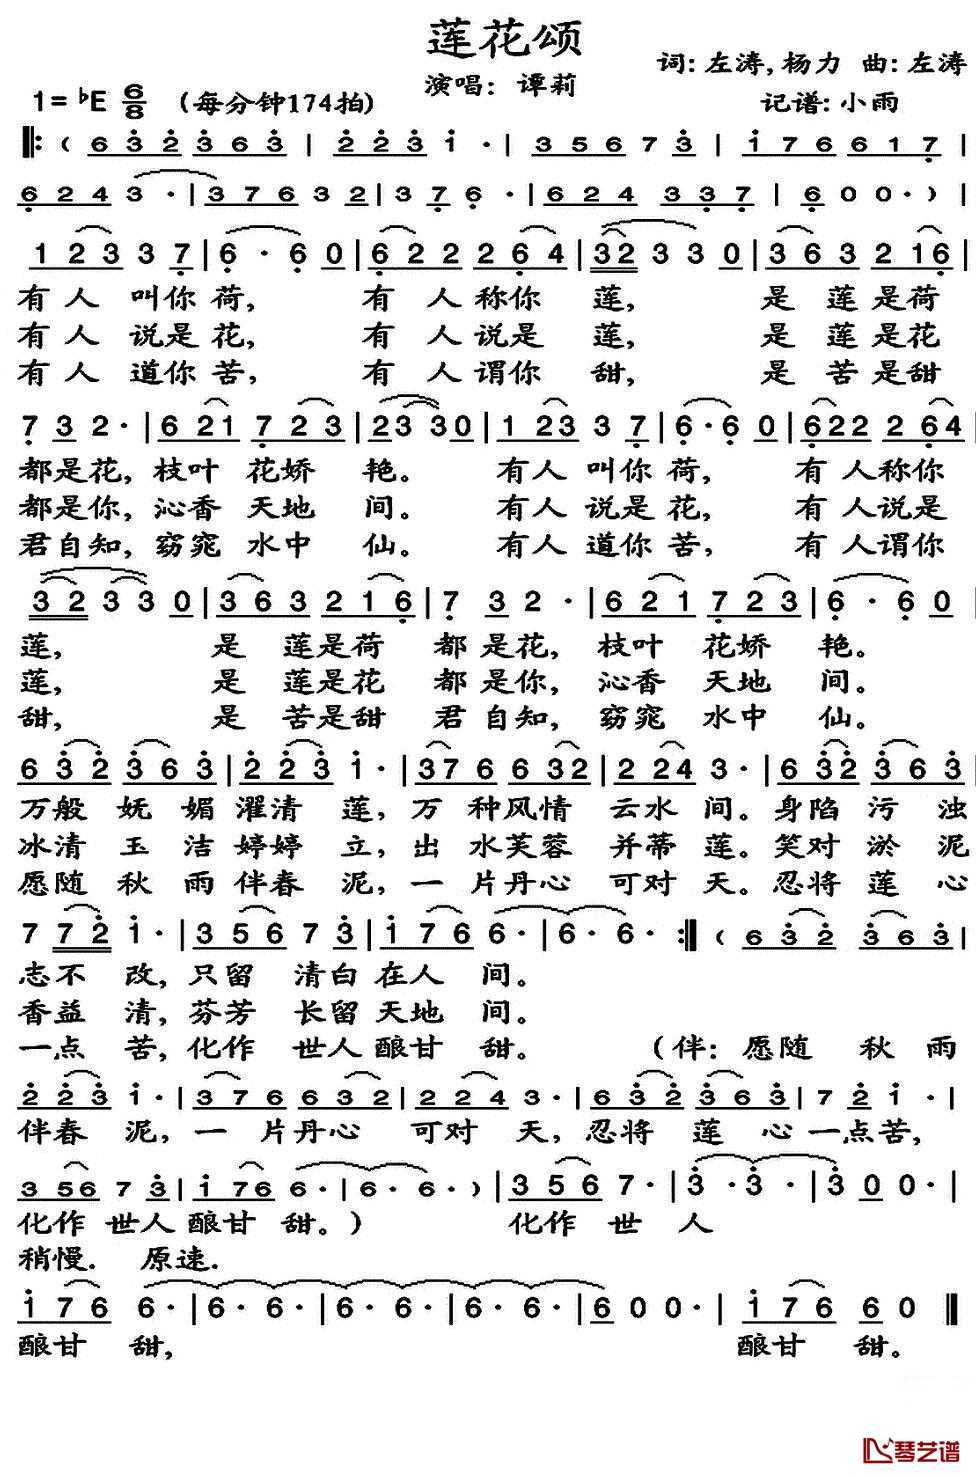 莲花颂
词: 左涛, 杨力 曲: 左涛
演唱: 谭莉
1= ♭E 6/8 (每分钟174拍)
记谱: 小雨
‖: ( 6 3 2 3 6 3 | 2 2 3 1 · | 3 5 6 7 3 | 1 7 6 6 1 7 |
6 2 4 3 · | 3 7 6 3 2 | 3 7 6 · | 6 2 4 3 3 7 | 6 0 0 · ) |
1 2 3 3 7 | 6 · 6 0 | 6 2 2 2 6 4 | 3 2 3 3 0 | 3 6 3 2 1 6 |
有 人 叫你 荷, 有 人 称你 莲, 是 莲 是荷
有 人 说是 花, 有 人 说是 莲, 是 莲 是花
有 人 道你 苦, 有 人 谓你 甜, 是 苦 是甜
7 3 2 · | 6 2 1 7 2 3 | 2 3 3 0 | 1 2 3 3 7 | 6 · 6 0 | 6 2 2 2 6 4 |
都是花, 枝叶 花娇 艳。 有人 叫你 荷, 有 人称你
都是你, 沁香 天地 间。 有人 说是 花, 有 人说是
君自知, 窈窕 水中 仙。 有人 道你 苦, 有 人谓你
3 2 3 3 0 | 3 6 3 2 1 6 | 7 3 2 · | 6 2 1 7 2 3 | 6 · 6 0 |
莲, 是 莲是荷 都 是花, 枝叶 花娇 艳。
莲, 是 莲是花 都 是你, 沁香 天地 间。
甜, 是 苦是甜 君 自知, 窈窕 水中 仙。
6 3 2 3 6 3 | 2 2 3 1 · | 3 7 6 6 3 2 | 2 2 4 3 · | 6 3 2 3 6 3 |
万般 妩 媚 濯清 莲, 万 种风情 云水 间。身陷 污 浊
冰清 玉 洁 婷婷 立, 出 水芙蓉 并蒂 莲。笑对 淤 泥
愿随 秋 雨 伴春 泥, 一 片丹心 可对 天。忍将 莲 心
7 7 2 1 · | 3 5 6 7 3 | 1 7 6 6 · | 6 · 6 · :‖ ( 6 3 2 3 6 3 |
志不 改, 只留 清白 在人 间。
香益 清, 芬芳 长留 天地 间。
一点 苦, 化作 世人 酿甘 甜。 (伴: 愿随 秋 雨
2 2 3 1 · | 3 7 6 6 3 2 | 2 2 4 3 · | 6 3 2 3 6 3 | 7 2 1 · |
伴春 泥, 一 片丹心 可对 天, 忍将 莲 心 一点苦,
3 5 6 7 3 | 1 7 6 6 · | 6 · 6 · ) | 3 5 6 7 · | 3 · 3 · | 3 0 0 · |
化作 世人 酿甘 甜。) 化作 世 人
稍慢. 原速.
1 7 6 6 · | 6 · 6 · | 6 · 6 · | 6 · 6 · | 6 · 6 · | 6 0 0 · | 1 7 6 6 0 ‖
酿甘 甜, 酿甘 甜。
琴艺谱